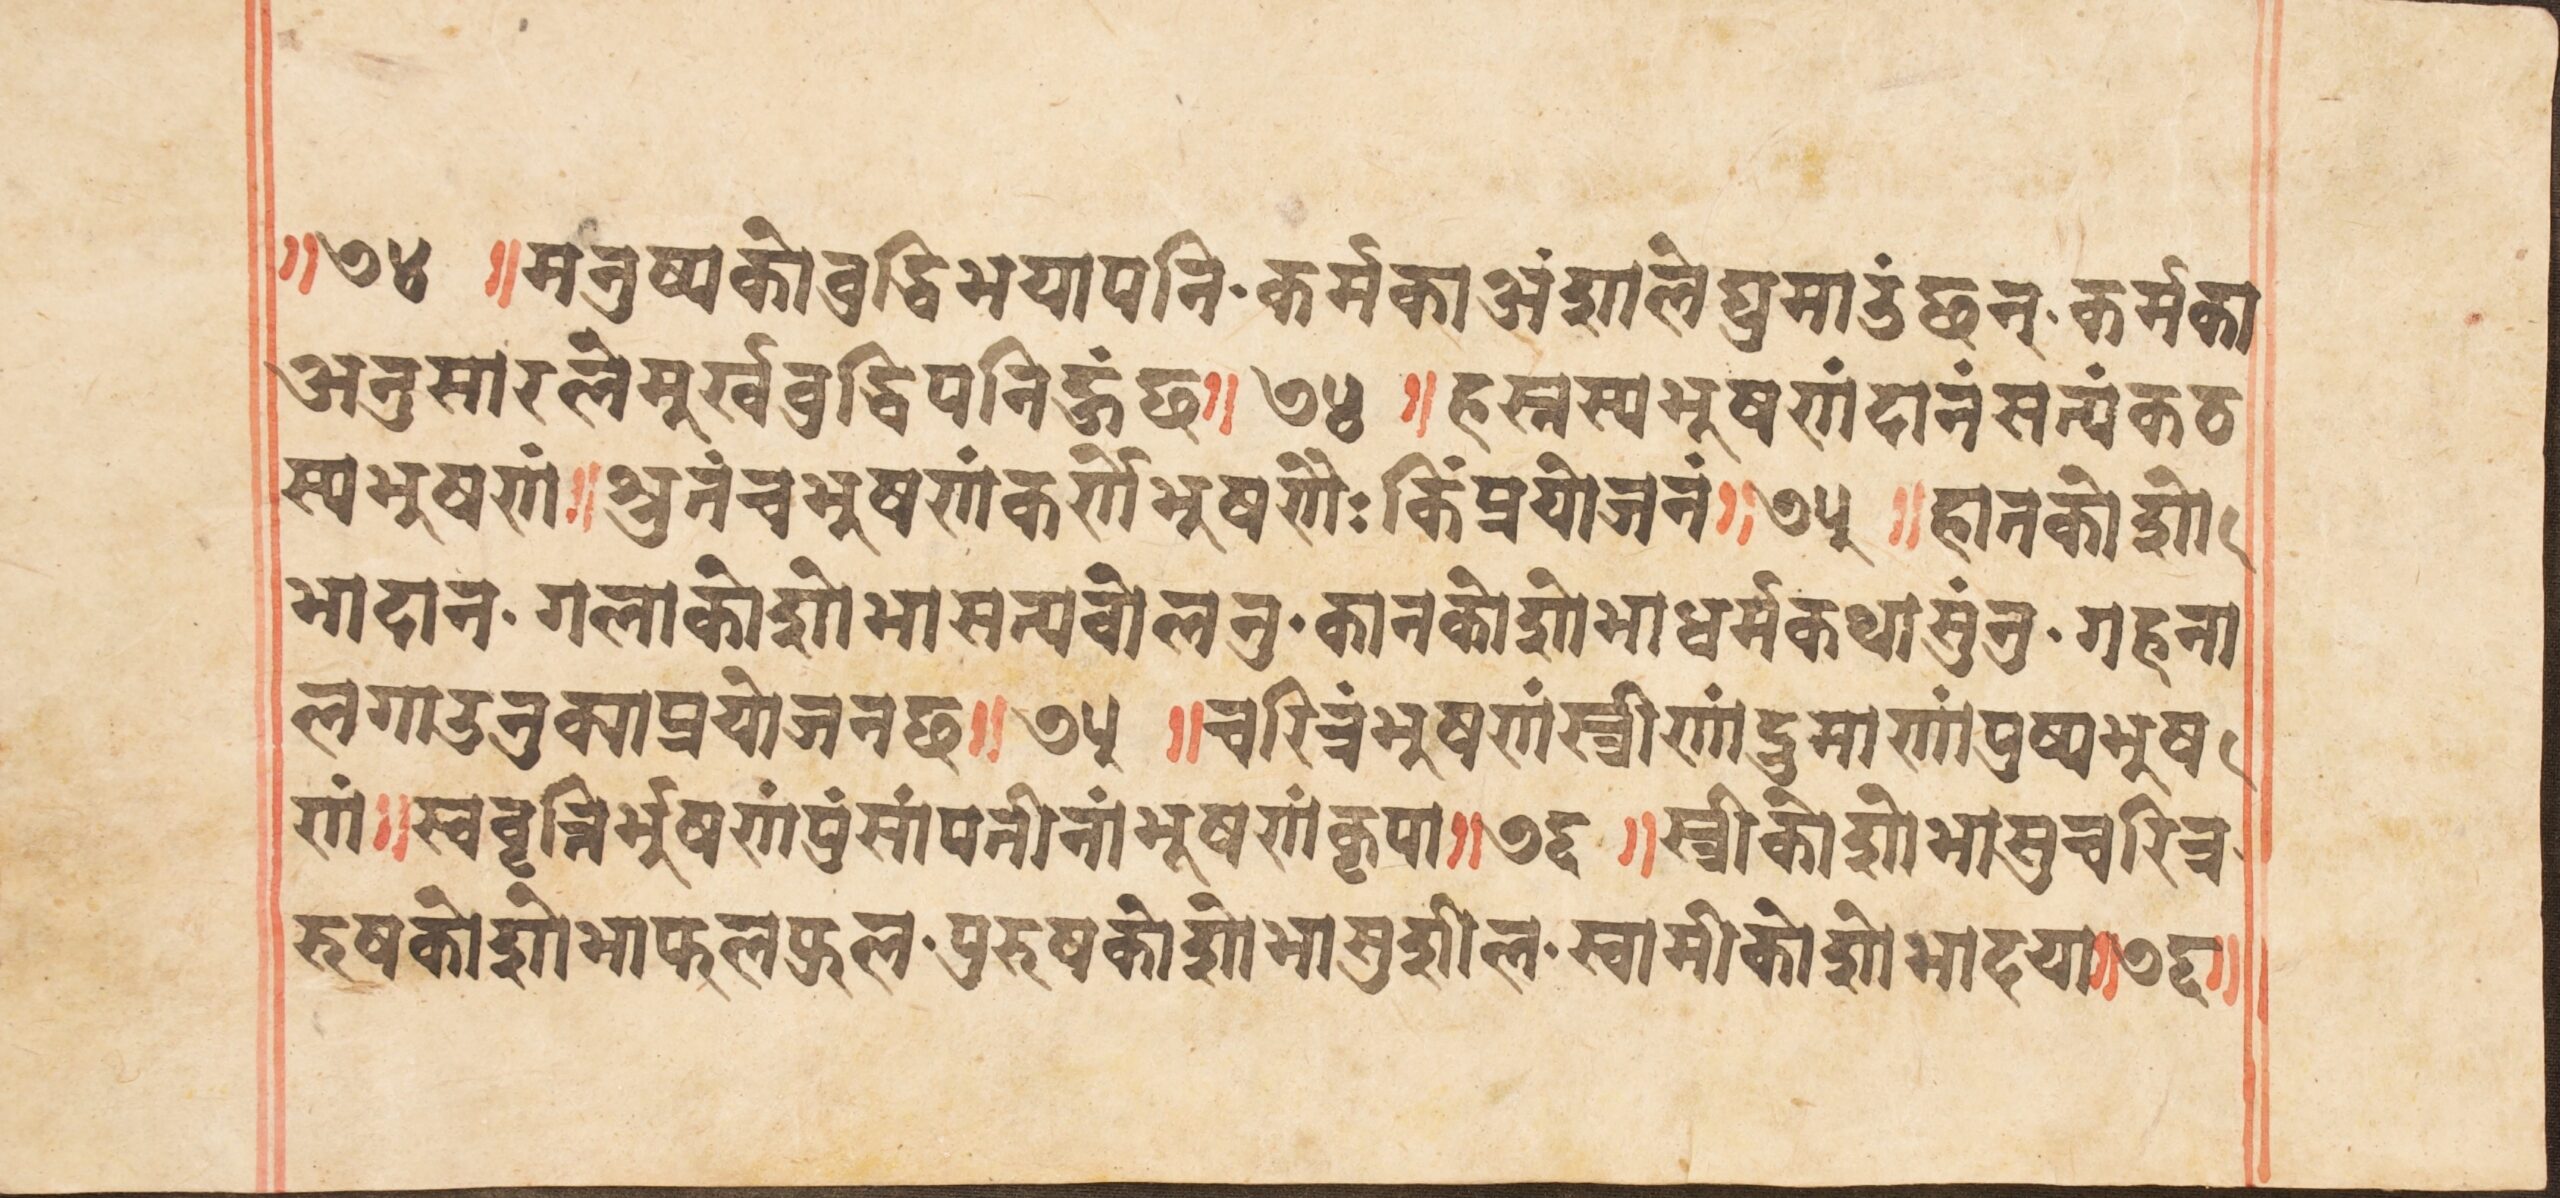 ॥७४ ॥मनुष्यकोबुद्धिभयापनि·कर्मकाअंशालेघुमाउंछन्·कर्मका
अनुसारलेमुर्खबुद्धिपनिहुंछ॥ ७४ ॥हस्तस्यभुषणंदानंसत्यंकठ
स्यभुषणं॥श्रुतंचभुषणंकर्णेभुषणैःकिंप्रयोजनं॥७५ ॥हातकोशो
भादान·गलाकोशोभासत्यबोलनु·कानकोशोभाधर्मकथासुंनु·गहना
लगाउनुक्याप्रयोजनछ॥ ७५ ॥चरित्रंभुषणंस्त्रीणांद्रुमाणांपुष्पभुष
णं॥स्ववृत्तिर्भुषणंपुंसांपतीनांभुषणंकृपा॥७६ ॥स्त्रीकोशोभासुचरित्र
रुषकोशोभाफलफुल·पुरुषकोशोभासुशील·स्वामीकोशोभादया॥७६॥